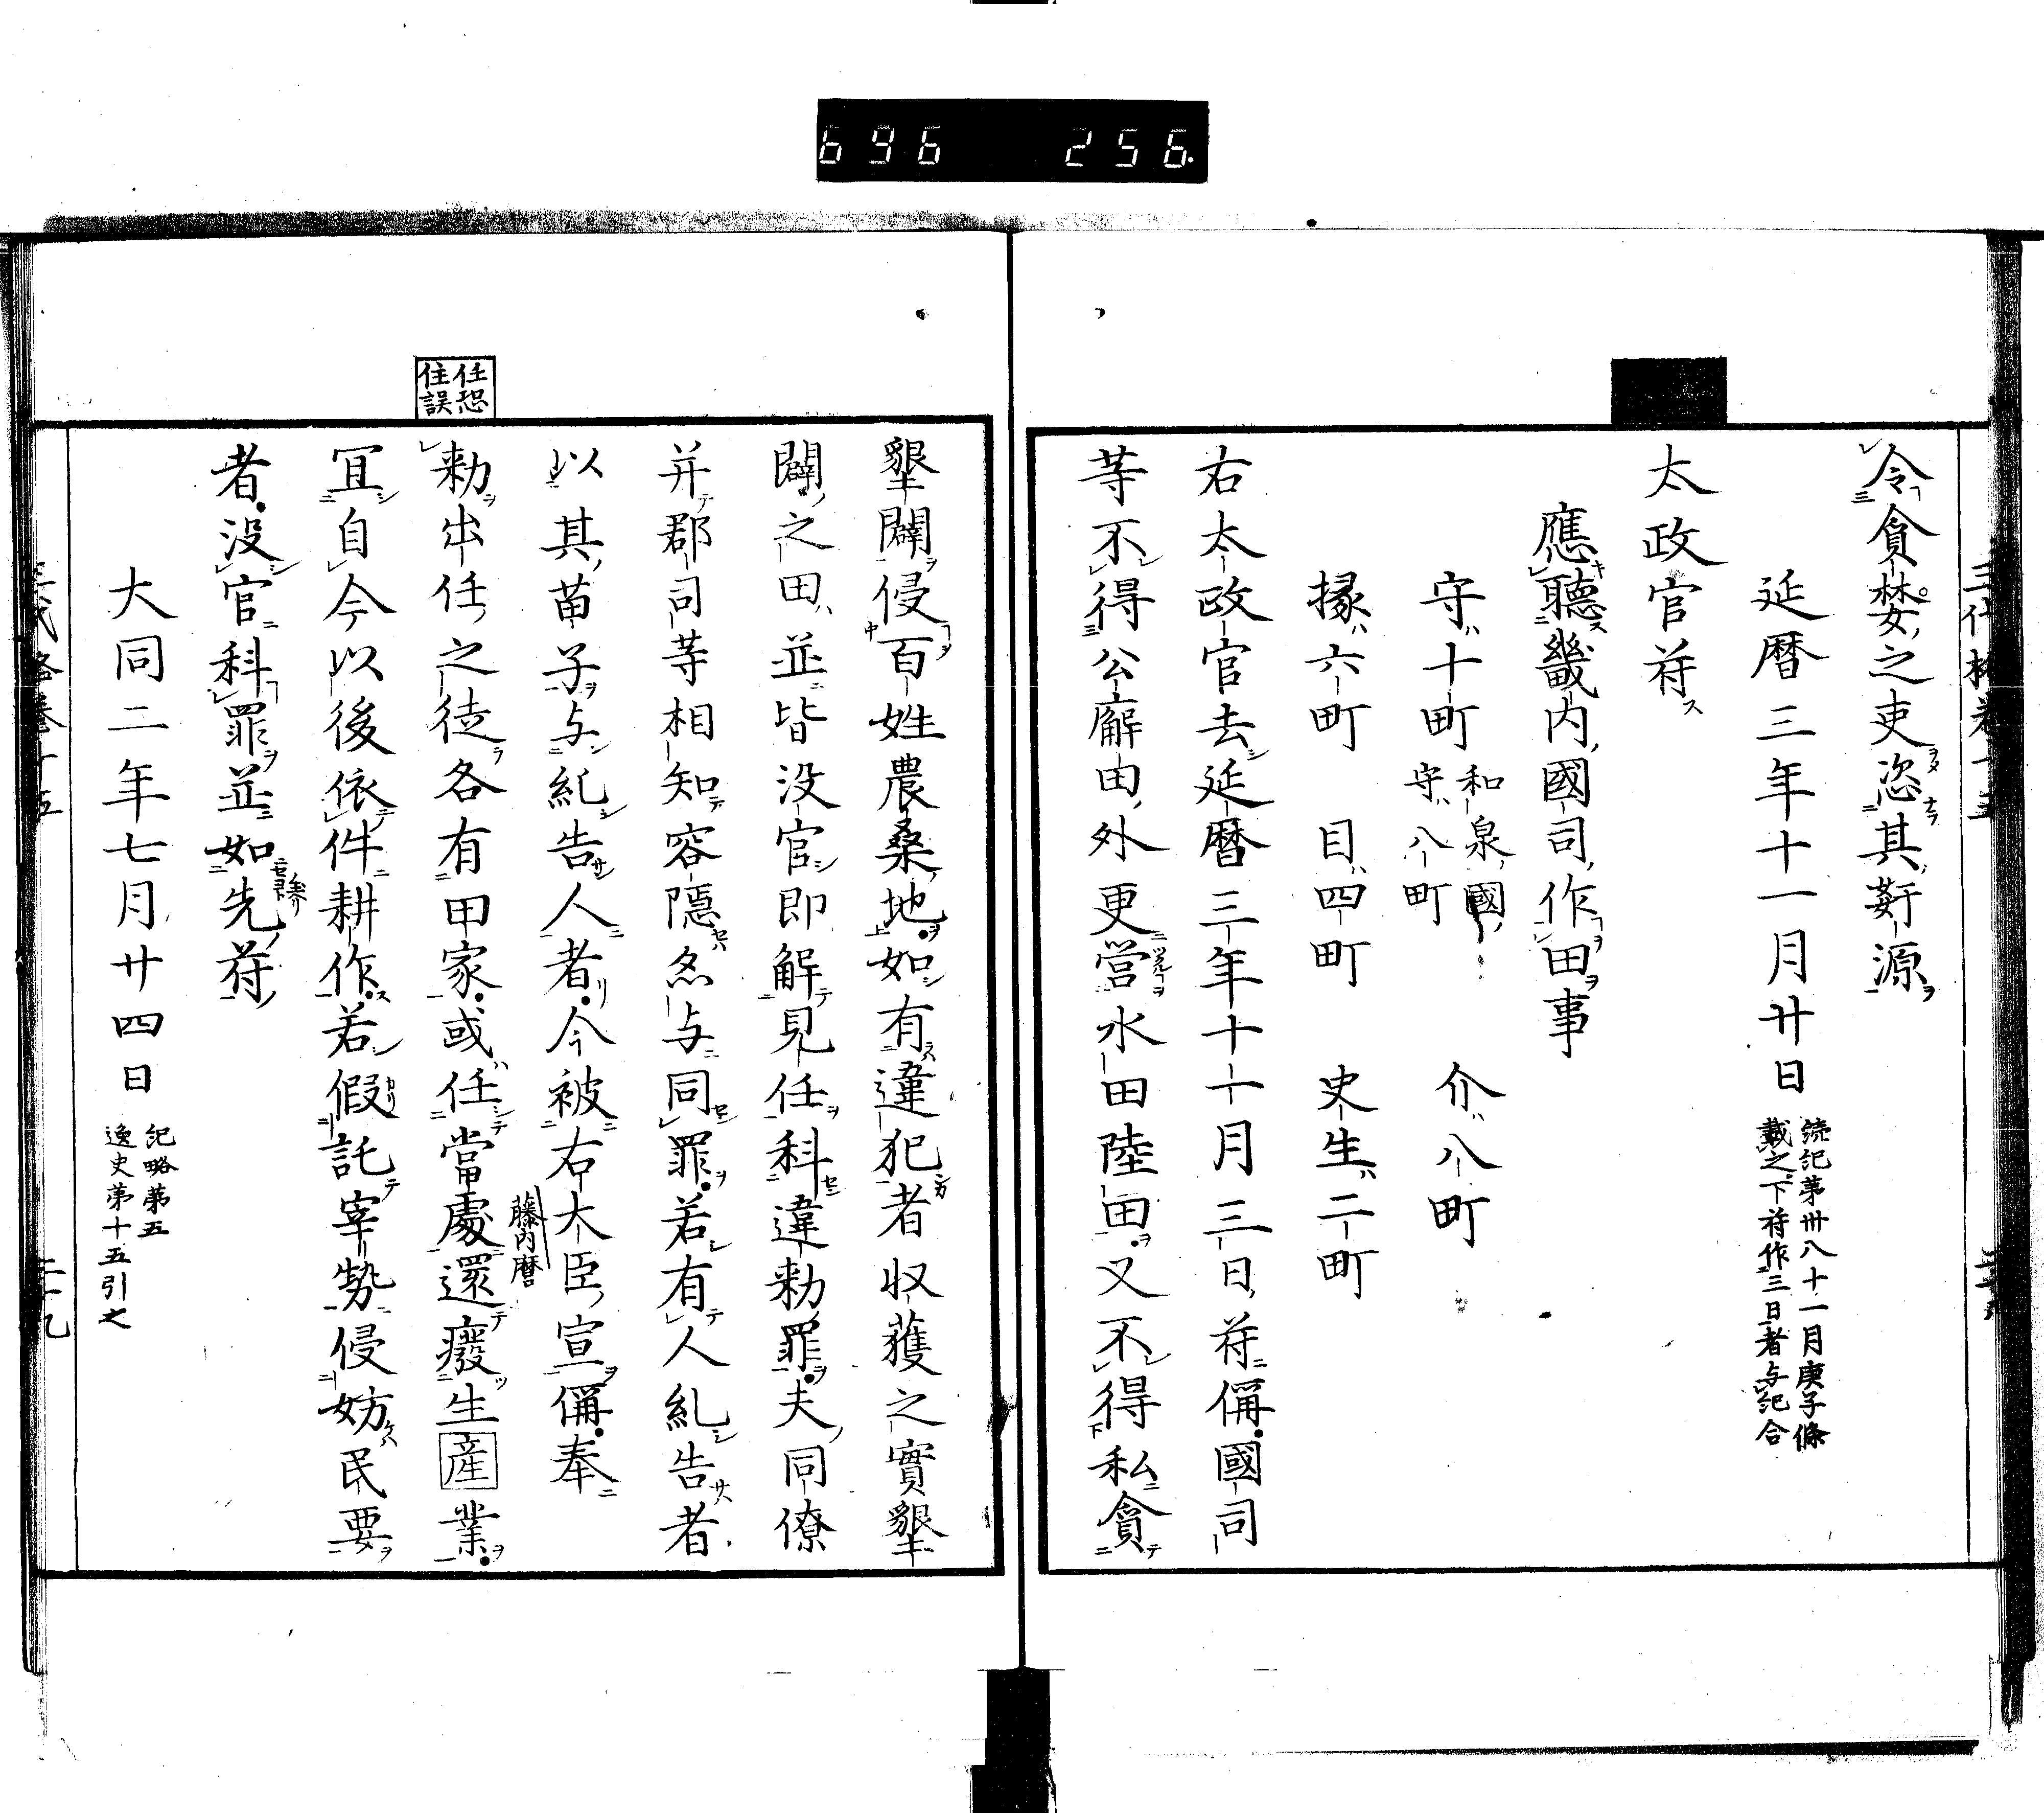 696 256
令貪婪之吏恣其姧源
延暦三年十一月廿日
続記第卅八十一月庚子條
載之下符作三日者与記合
太政官符
應聽畿内國司作田事
守十町
和泉國
守八町
介八町
掾六町 目四町 史生二町
右太政官去延暦三年十一月三日符偁國司
等不得公廨田外更營水田陸田又不得私貪
墾闢侵百姓農桑地如有違犯者収獲之實墾
闢之田並皆没官即解見任科違勅罪夫同僚
并郡司等相知容隱亦与同罪若有人糺告者
以其苗子与糺告人者今被右大臣宣偁奉
藤内麿
勅出任之徒各有田家或任當處還癈生産業
任恐
住誤
冝自今以後依件耕作若假託宰勢侵妨民要
者没官科罪並如先符
大同二年七月廿四日
記略第五
逸史第十五引之